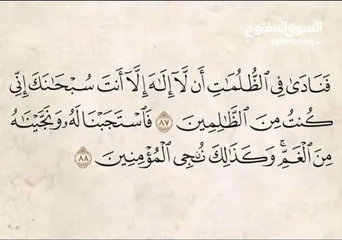 السوق المفتوح
فَنَادَىٰ فِي ٱلظُّلُمَـٰتِ أَن لَّآ إِلَـٰهَ إِلَّآ أَنتَ سُبْحَـٰنَكَ إِنِّي
كُنتُ مِنَ ٱلظَّـٰلِمِينَ ٨٧ فَٱسْتَجَبْنَا لَهُۥ وَنَجَّيْنَـٰهُ
مِنَ ٱلْغَمِّ ۚ وَكَذَٰلِكَ نُـۨجِي ٱلْمُؤْمِنِينَ ٨٨